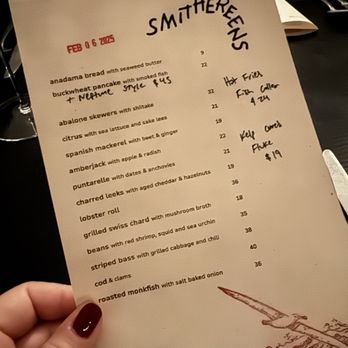 SMITHEREENS
FEB 06 2025
anadama bread with seaweed butter 9
buckwheat pancake with smoked fish 22
+ Neptune Style $45
abalone skewers with shiitake 32
citrus with sea lettuce and sake lees 21
spanish mackerel with beet & ginger 19
amberjack with apple & radish 22
puntarelle with dates & anchovies 21
charred leeks with aged cheddar & hazelnuts 19
lobster roll 36
grilled swiss chard with mushroom broth 18
beans with red shrimp, squid and sea urchin 35
striped bass with grilled cabbage and chili 38
cod & clams 40
roasted monkfish with salt baked onion 36
Hot Fried
Fish Collar
$24
Kelp Cured
Fluke
$19